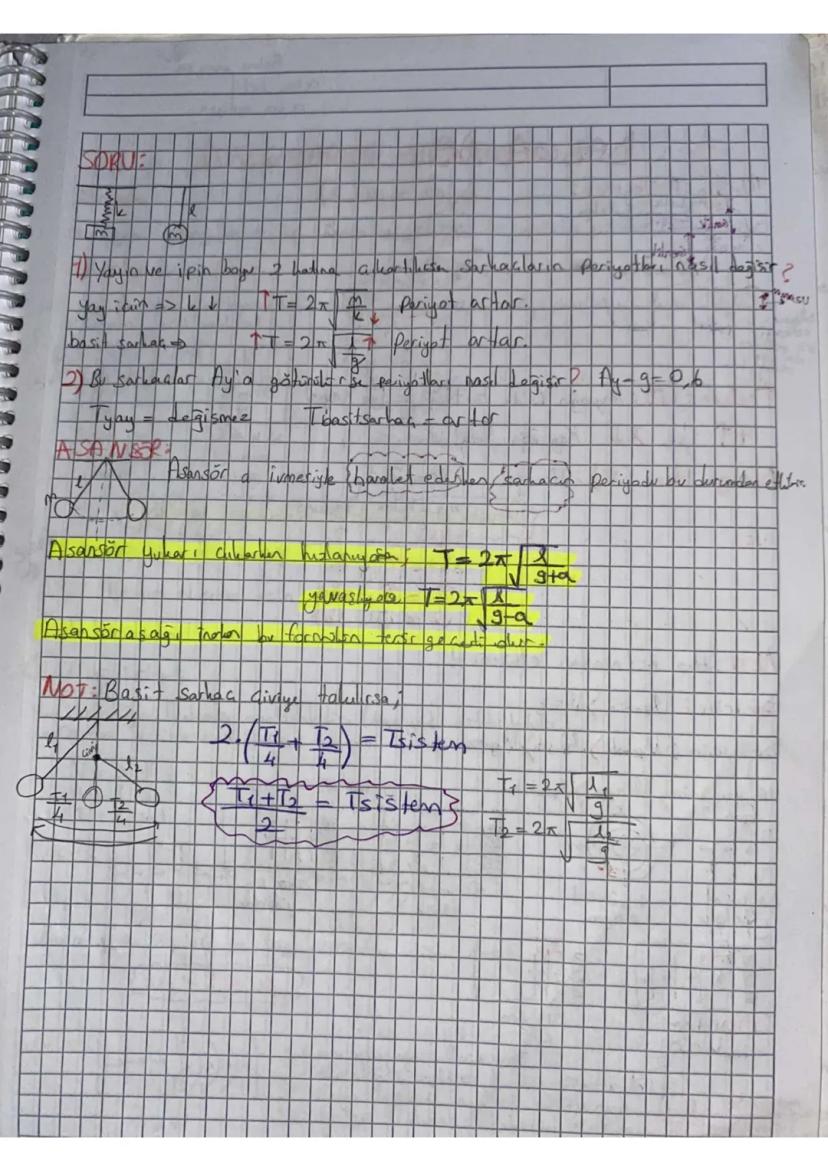 SORU:
k l
m m
1) Yayın ve ipin boyu 2 katına çıkartılırsa sarkaçların periyotları nasıl değişir?
yay için => k↓ ↑T = 2π√(m/k)↓ Periyot artar.
basit sarkaç => ↑T = 2π√(l/g)↑ Periyot artar.
2) Bu sarkaçlar Ay'a götürülürse periyotları nasıl değişir? Ay - g = 0,6
Tyay = değişmez Tbasitsarkaç = artar
ASANSÖR:
Asansör a ivmesiyle hareket ederken sarkacın periyodu bu durumdan etkilenir.
l
m
Asansör yukarı çıkarken hızlanıyorsa; T = 2π√(l/g+a)
yavaşlıyorsa T = 2π√(l/g-a)
Asansör aşağı inerken bu formülün tersi geçerli olur.
NOT: Basit sarkaç çiviye takılırsa;
l1 çivi l2
2.(T1/4 + T2/4) = Tsistem
T1/4 T2/4
(T1+T2)/2 = Tsistem
T1 = 2π√(l1/g)
T2 = 2π√(l2/g)